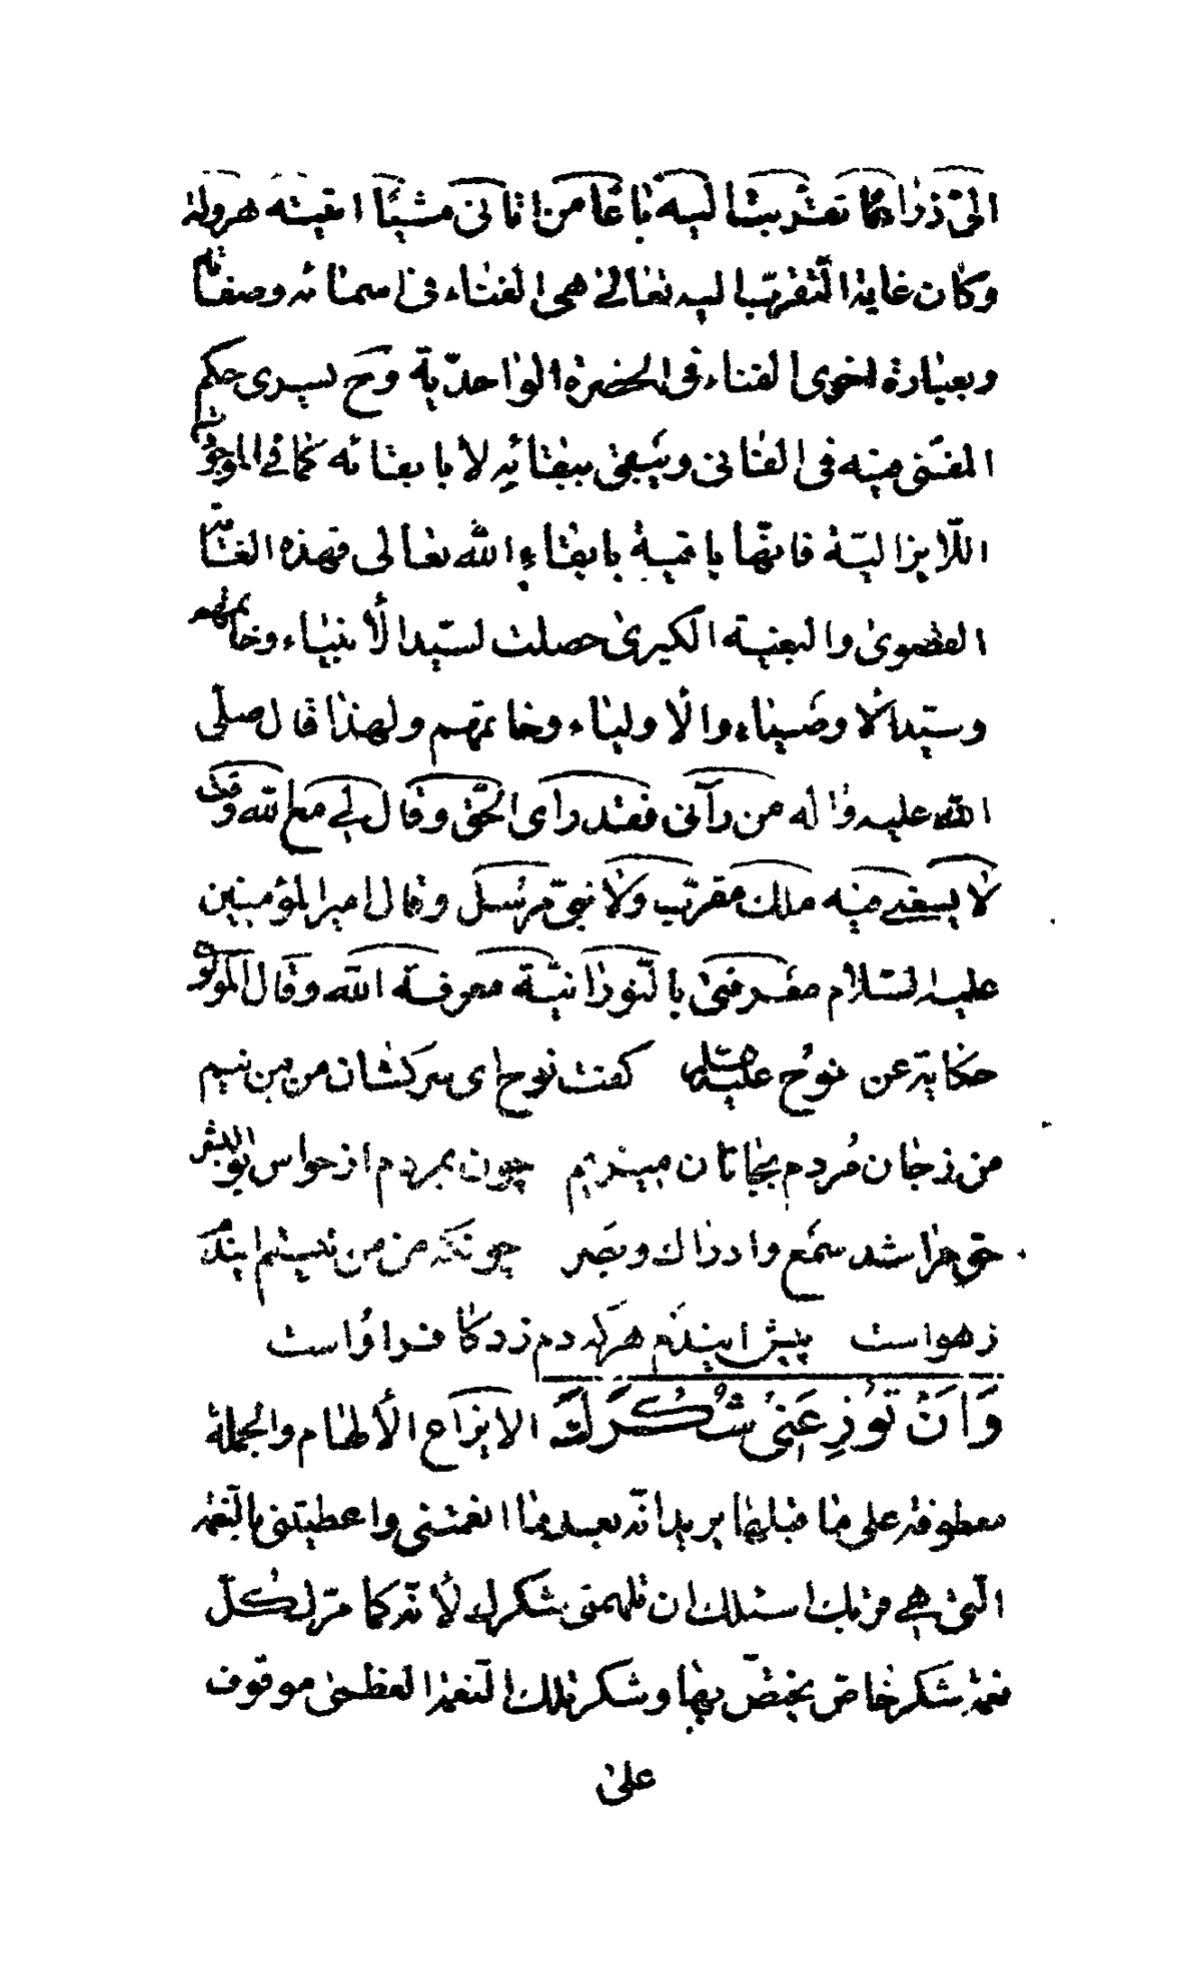 الیّ ذراعا تقربت الیه باعا من اتانی مشیا اتیته هرولة
وکان غایة التقرّب الیه تعالی هی الفناء فی اسمائه وصفاته
وبعبارة اخری الفناء فی الحضرة الواحدیة وح یسری حکم
المفنی فیه فی الفانی ویبقی ببقائه لا بابقائه کما فی الموجودات
اللّایزالیّة فانّها باقیة بابقاء الله تعالی فهذه الغایة
القصوی والبغیة الکبری حصلت لسیّد الأنبیاء وخاتمهم
وسیّد الأوصیاء والأولیاء وخاتمهم ولهذا قال صلّی
الله علیه واله من رآنی فقد رای الحّق وقال لی مع الله وقت
لا یسعنی فیه ملك مقرّب ولا نبیّ مرسل وقال امیر المؤمنین
علیه السّلام معرفتی بالنّورانیّة معرفة الله وقال المولوی
حکایة عن نوح علیه السّلام کفت نوح ای سرکشان من من نیم
من ز جان مردم بجانان میزیم چون بمردم از حواس بو البشر
حق مرا شد سمع وادراك وبصر چونکه من من نیستم ایندم
ز هواست پیش ایندم هرکه دم زد کافر اواست
وَاَنْ تُوزِعَنی شُکْرَكَ الایزاع الألهام والجملة
معطوفة علی ما قبلها یرید انّه بعد ما انعمتنی واعطیتنی بالنّعمة
الّتی هی قربك اسئلك ان تلهمنی بشکرك لأنّه کما مرّ لکلّ
نعمة شکر خاصّ یختصّ بها وشکر تلك النّعمة العظمی موقوف
علی